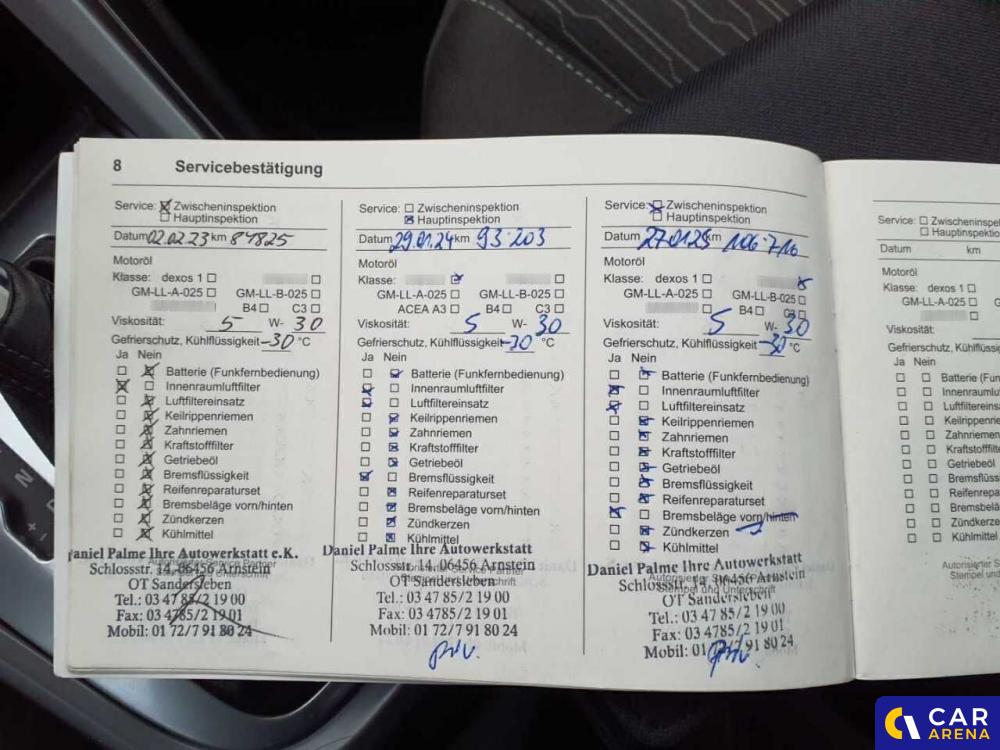 8 Servicebestätigung
Service: Zwischeninspektion
Hauptinspektion
Datum 02.02.23 km 84825
Motoröl
Klasse: dexos 1
GM-LL-A-025 GM-LL-B-025
B4 C3
Viskosität: 5 W- 30
Gefrierschutz, Kühlflüssigkeit -30 °C
Ja Nein
Batterie (Funkfernbedienung)
Innenraumluftfilter
Luftfiltereinsatz
Keilrippenriemen
Zahnriemen
Kraftstofffilter
Getriebeöl
Bremsflüssigkeit
Reifenreparaturset
Bremsbeläge vorn/hinten
Zündkerzen
Kühlmittel
Daniel Palme Ihre Autowerkstatt e.K.
Schlossstr. 14, 06456 Arnstein
OT Sandersleben
Tel.: 03 47 85/2 19 00
Fax: 03 4785/2 19 01
Mobil: 01 72/7 91 80 24
Service: Zwischeninspektion
Hauptinspektion
Datum 29.01.24 km 93.203
Motoröl
Klasse:
GM-LL-A-025 GM-LL-B-025
ACEA A3 B4 C3
Viskosität: 5 W- 30
Gefrierschutz, Kühlflüssigkeit -30 °C
Ja Nein
Batterie (Funkfernbedienung)
Innenraumluftfilter
Luftfiltereinsatz
Keilrippenriemen
Zahnriemen
Kraftstofffilter
Getriebeöl
Bremsflüssigkeit
Reifenreparaturset
Bremsbeläge vorn/hinten
Zündkerzen
Kühlmittel
Daniel Palme Ihre Autowerkstatt
Schlossstr. 14, 06456 Arnstein
OT Sandersleben
Tel.: 03 47 85/2 19 00
Fax: 03 4785/2 19 01
Mobil: 01 72/7 91 80 24
Service: Zwischeninspektion
Hauptinspektion
Datum 27.01.25 km 106.710
Motoröl
Klasse: dexos 1
GM-LL-A-025 GM-LL-B-025
B4 C3
Viskosität: 5 W- 30
Gefrierschutz, Kühlflüssigkeit -30 °C
Ja Nein
Batterie (Funkfernbedienung)
Innenraumluftfilter
Luftfiltereinsatz
Keilrippenriemen
Zahnriemen
Kraftstofffilter
Getriebeöl
Bremsflüssigkeit
Reifenreparaturset
Bremsbeläge vorn/hinten
Zündkerzen
Kühlmittel
Daniel Palme Ihre Autowerkstatt
Autorisierter
Schlossstr. 14, 06456 Arnstein
Stempel und Unterschrift
OT Sandersleben
Tel.: 03 47 85/2 19 00
Fax: 03 4785/2 19 01
Mobil: 01 72/7 91 80 24
Service: Zwischeninspektion
Hauptinspektion
Datum km
Motoröl
Klasse: dexos 1
GM-LL-A-025
Viskosität:
Gefrierschutz, Kühlflüssig
Ja Nein
Batterie (Funkf
Innenraumluft
Luftfiltereins
Keilrippenrie
Zahnriemen
Kraftstofffil
Getriebeöl
Bremsflüss
Reifenrepa
Bremsbelä
Zündkerze
Kühlmittel
Autorisierter Se
Stempel un
CAR
ARENA
N